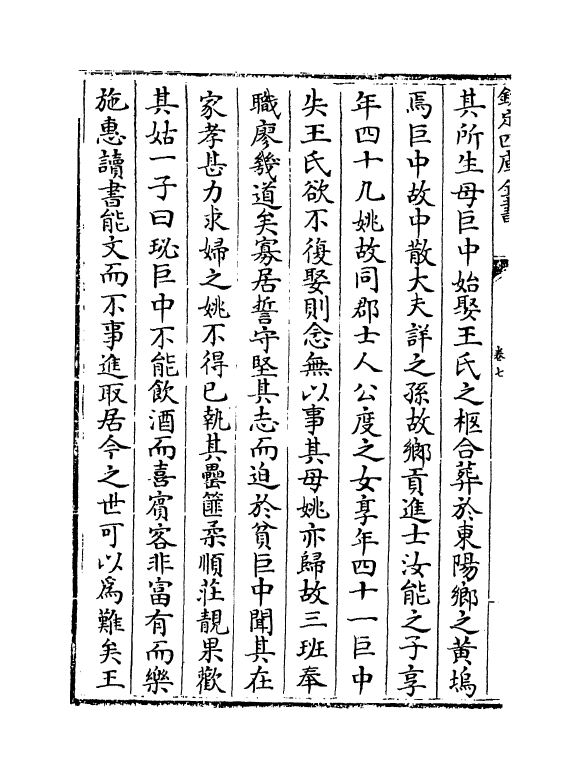 欽定四庫全書
卷七
其所生母巨中始娶王氏之柩合葬於東陽鄉之黃塢
焉巨中故中散大夫詳之孫故鄉貢進士汝能之子享
年四十九姚故同郡士人公度之女享年四十一巨中
失王氏欲不復娶則念無以事其母姚亦歸故三班奉
職廖幾道矣寡居誓守堅其志而迫於貧巨中聞其在
家孝甚力求婦之姚不得已執其罍篚柔順莊靚果歡
其姑一子曰玧巨中不能飲酒而喜賓客非富有而樂
施惠讀書能文而不事進取居今之世可以為難矣王